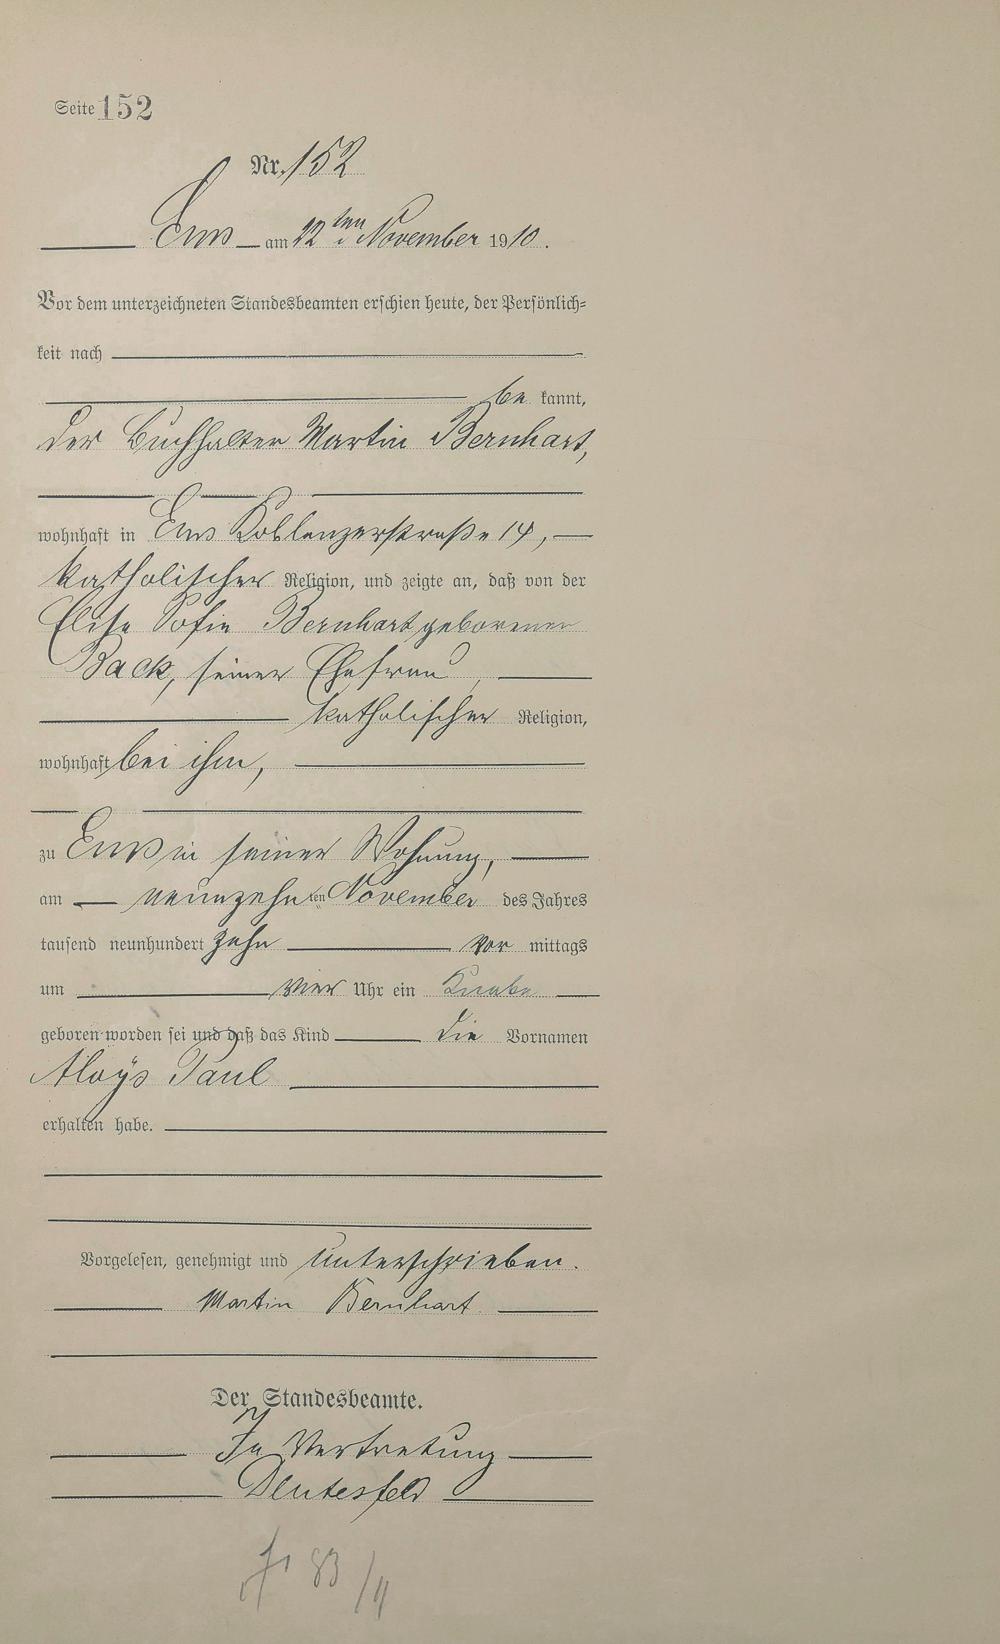 Seite 152
Nr. 152
Ems am 22ten November 1910.
Vor dem unterzeichneten Standesbeamten erschien heute, der Persönlich-
keit nach
be kannt,
der Buchhalter Martin Bernhart,
wohnhaft in Ems Koblenzerstraße 14,
katholischer Religion, und zeigte an, daß von der
Elise Sofie Bernhart geborenen
Back, seiner Ehefrau,
katholischer Religion,
wohnhaft bei ihm,
zu Ems in seiner Wohnung,
am neunzehnten November des Jahres
tausend neunhundert zehn vor mittags
um vier Uhr ein Knabe
geboren worden sei und daß das Kind die Vornamen
Aloÿs Paul
erhalten habe.
Vorgelesen, genehmigt und unterschrieben.
Martin Bernhart
Der Standesbeamte.
In Vertretung
83/11